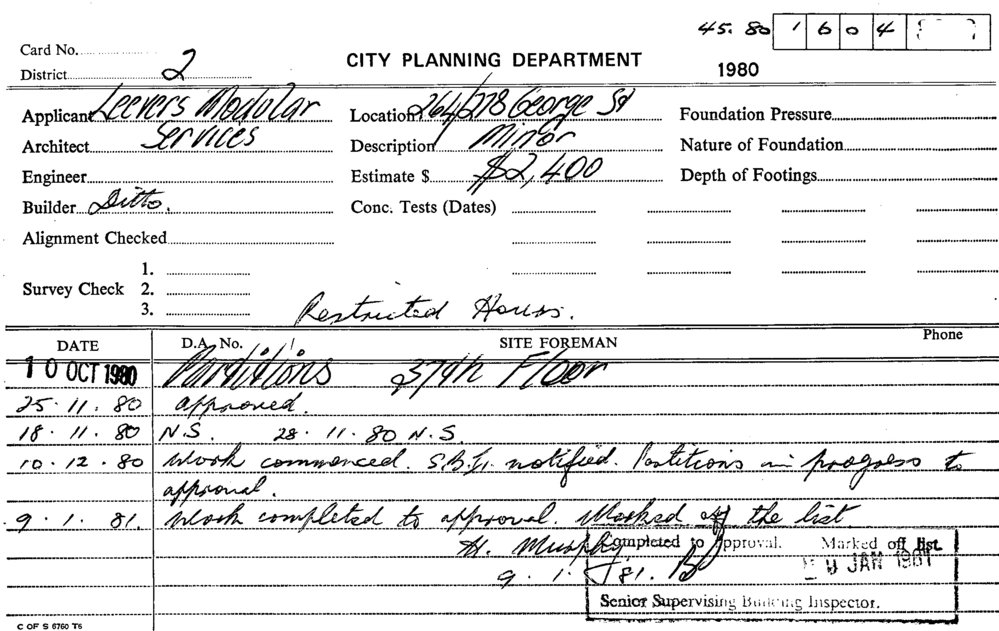 45. 80 1604
Card No.
District 2
CITY PLANNING DEPARTMENT
1980
Applicant Leevers Modular
Location 264/278 George St
Foundation Pressure
Architect Services
Description Minor
Nature of Foundation
Engineer
Estimate $ $2,400
Depth of Footings
Builder Ditto.
Conc. Tests (Dates)
Alignment Checked
Survey Check
1.
2.
3.
Restricted Hours.
DATE D.A. No. SITE FOREMAN Phone
10 OCT 1980 Partitions 37th Floor
25. 11. 80 approved.
18. 11. 80 N.S. 28. 11. 80 N.S.
10. 12. 80 Work commenced. S.B.I. notified. Partitions in progress to
approval.
9. 1. 81. Work completed to approval. Marked off the list
H. Murphy
9. 1. 81.
Completed to Approval. Marked off list.
JAN 1981
Senior Supervising Building Inspector.
C OF S 6760 T6